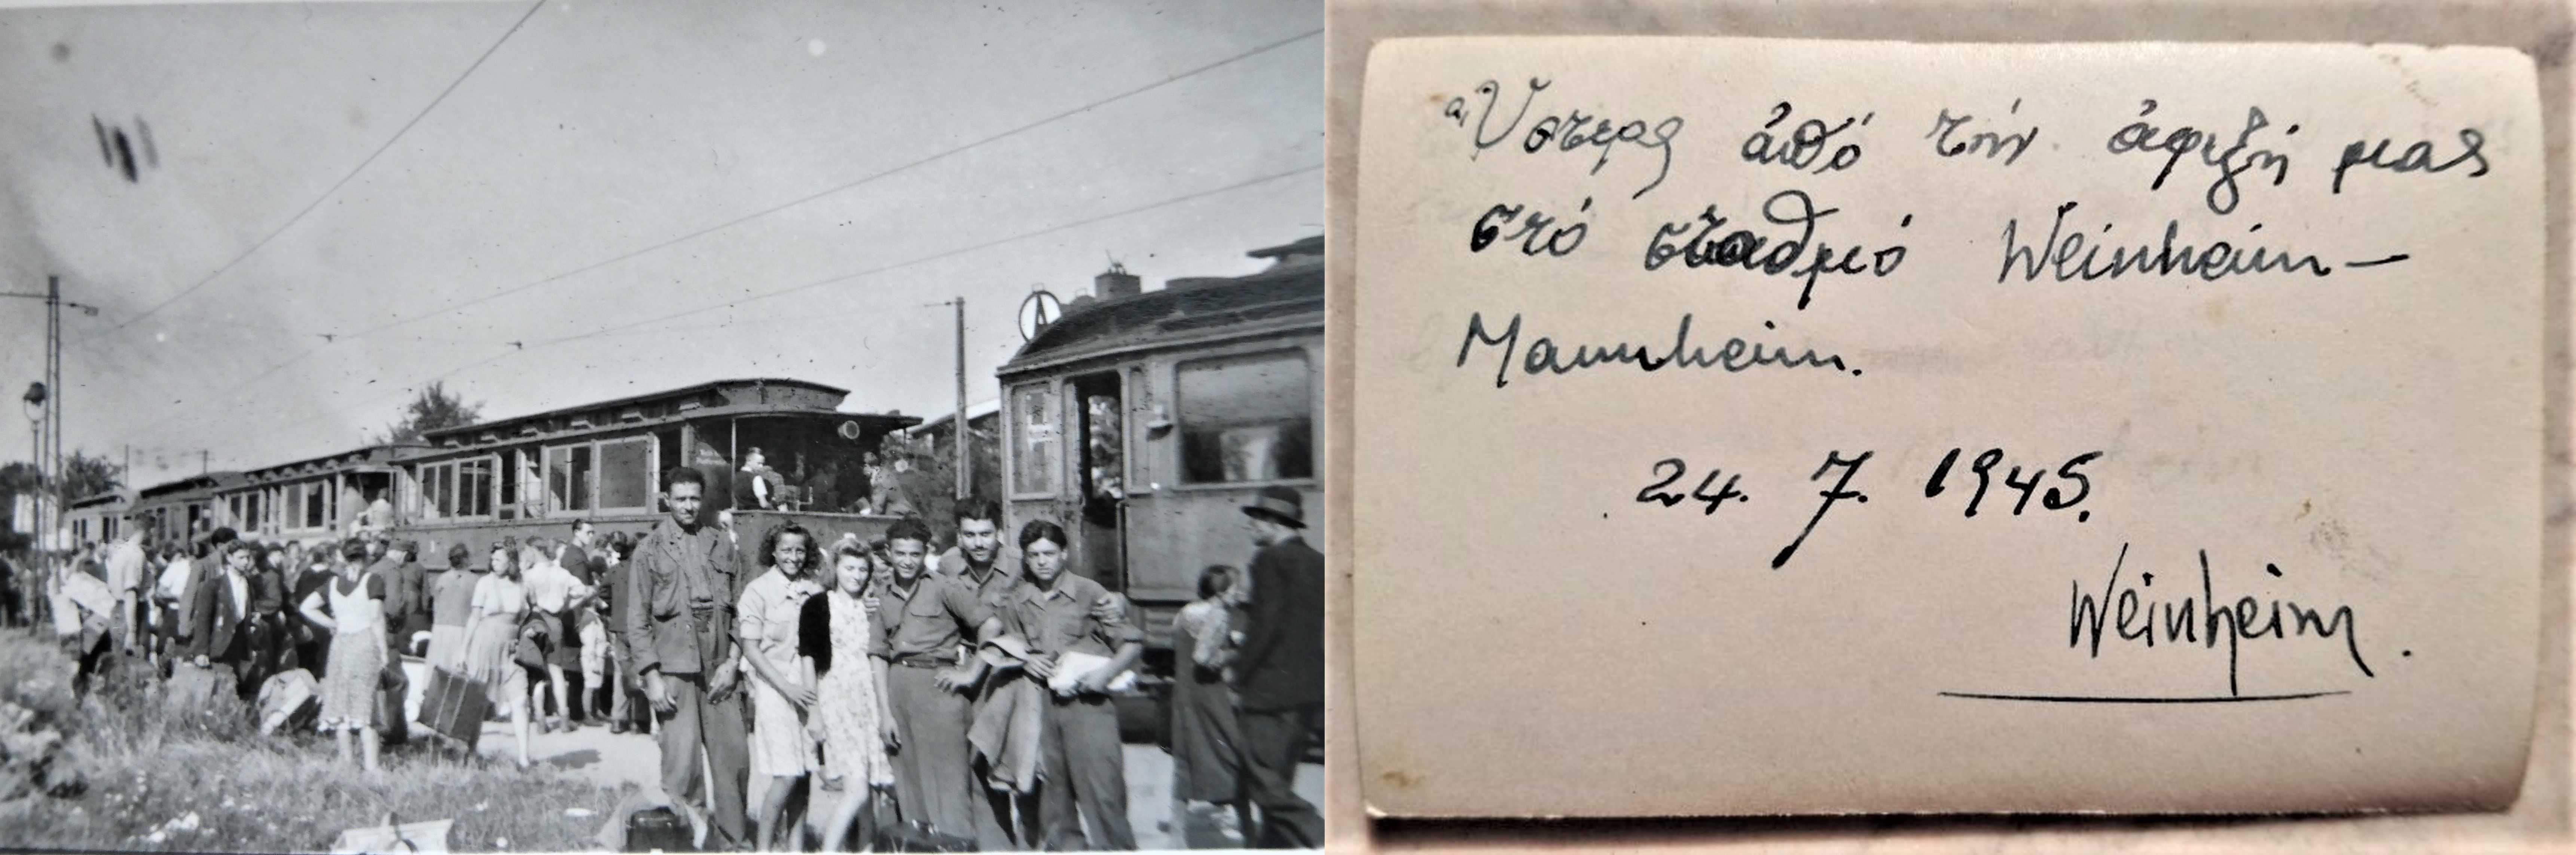 Ⓐ
"Υστερα ἀπό τήν ἀφιξή μας
στό σταθμό Weinheim—
Mannheim.
24. 7. 1945.
Weinheim.